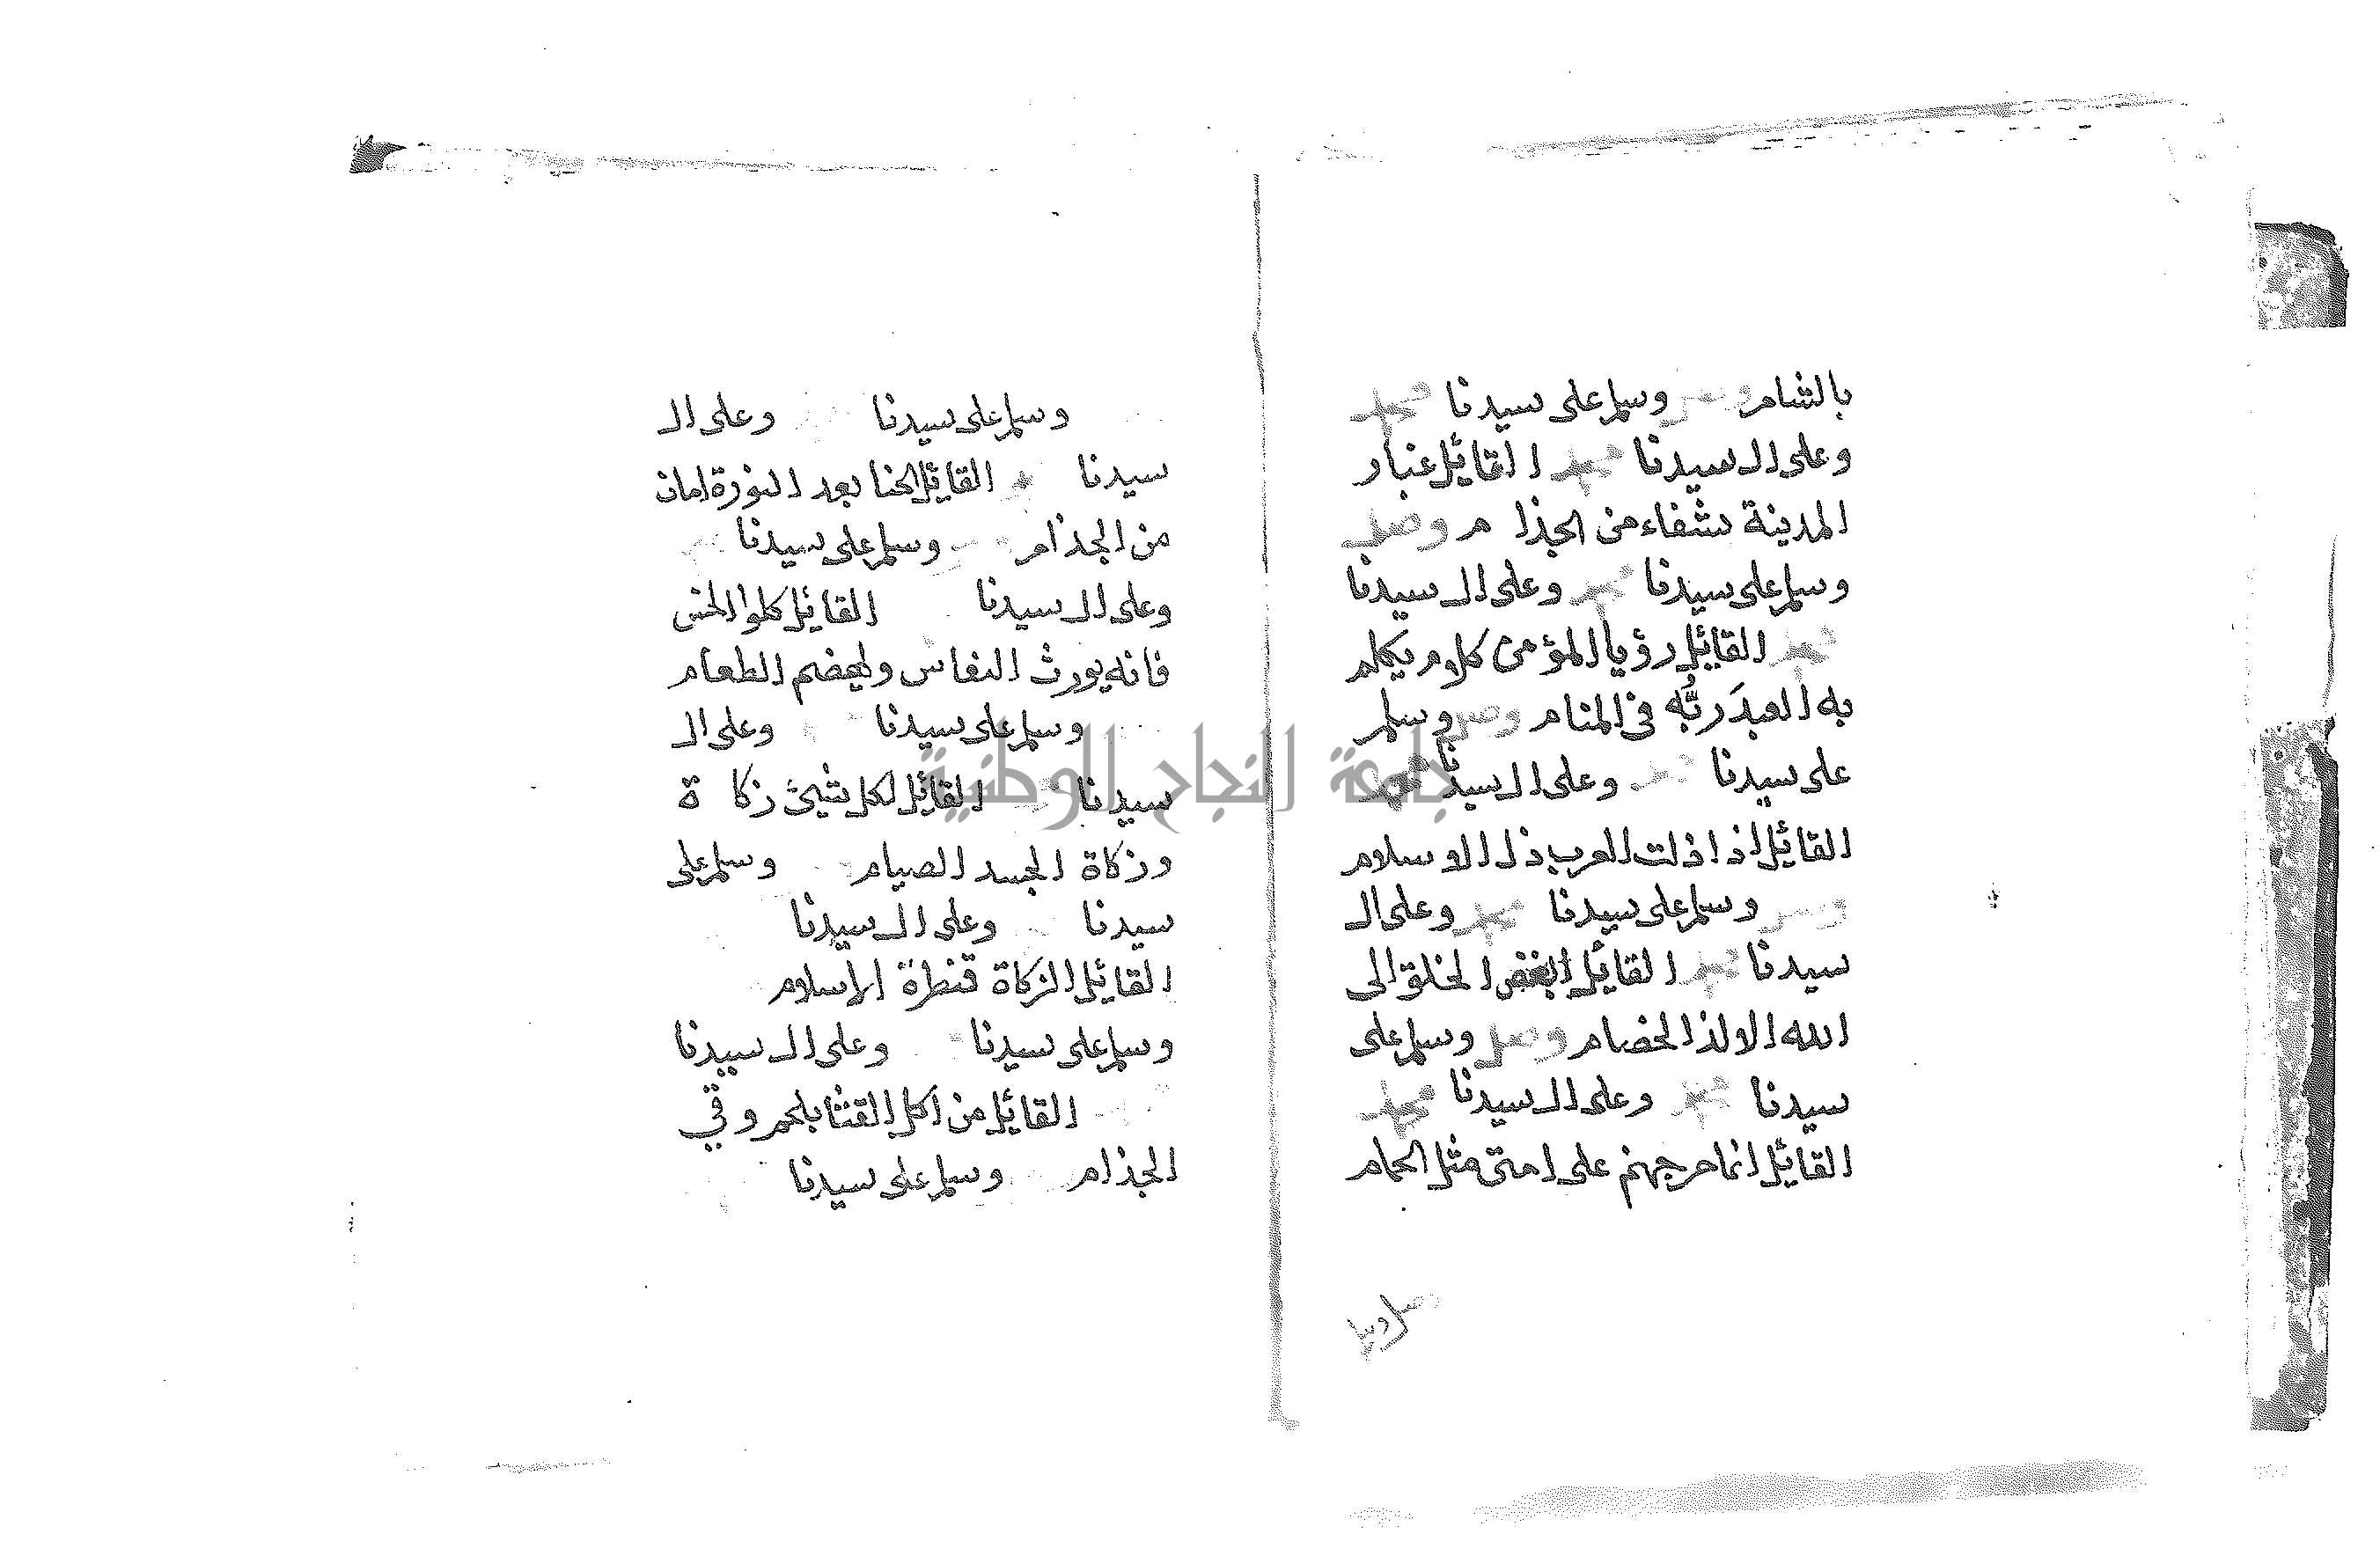 بالشام وصل وسلم على سيدنا محمد
وعلى ال سيدنا محمد القائل غبار
المدينة شفاء من الجذام وصل
وسلم على سيدنا محمد وعلى ال سيدنا
محمد القائل رؤيا المؤمن كلام يكلم
به العبدَ ربُّه في المنام وصل وسلم
على سيدنا محمد وعلى ال سيدنا محمد
القائل اذا ذلت العرب ذل الاسلام
وصل وسلم على سيدنا محمد وعلى ال
سيدنا محمد القائل ابغض الخلق الى
الله الالد الخصام وصل وسلم على
سيدنا محمد وعلى ال سيدنا محمد
القائل انما حر جهنم على امتى مثل الحمام
وصل وسلم
وسلم على سيدنا وعلى ال
سيدنا القائل الحنا بعد النورة امان
من الجذام وسلم على سيدنا
وعلى ال سيدنا القائل كلوا الخس
فانه يورث النعاس ويهضم الطعام
وسلم على سيدنا وعلى ال
سيدنا القائل لكل شيئ زكاة
وزكاة الجسد الصيام وسلم على
سيدنا وعلى ال سيدنا
القائل الزكاة قنطرة الاسلام
وسلم على سيدنا وعلى ال سيدنا
القائل من اكل القثا بلحم وقي
الجذام وسلم على سيدنا
جامعة النجاح الوطنية